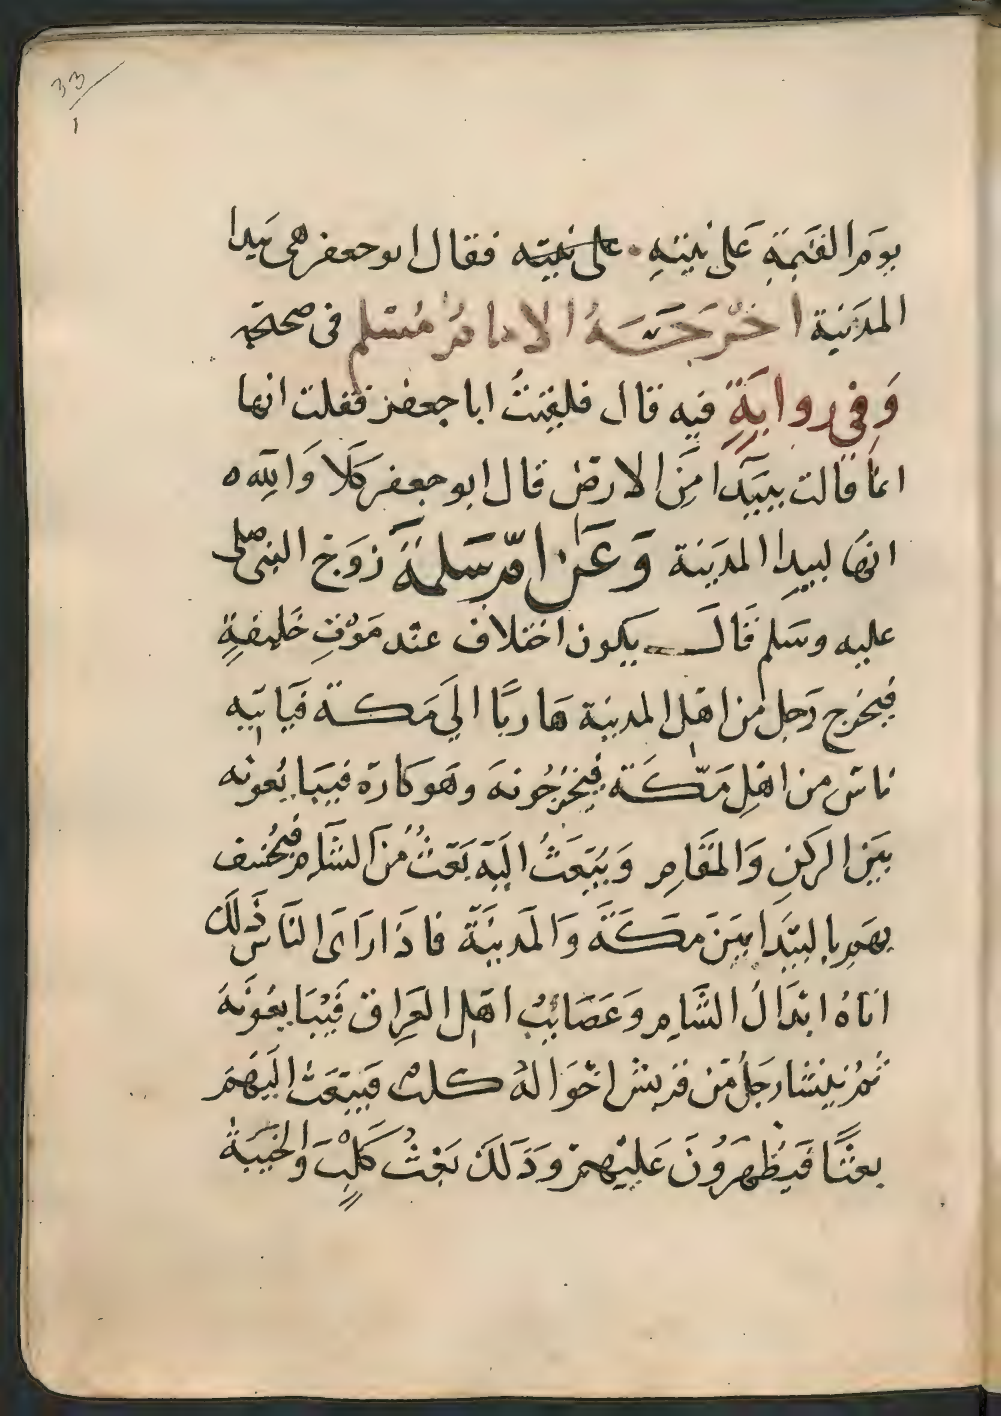 33
1
يوم القيمة على نيته . على نيته فقال ابو جعفر هى بيدا
المدينة اخرجه الامام مسلم فى صحيحه
وفى رواية فيه قال فلقيت ابا جعفر فقلت انها
انما قالت ببيدا من الارض قال ابو جعفر كلا والله ه
انها لبيدا المدينة وعن ام سلمة زوج النبى صلى
عليه وسلم قال يكون اختلاف عند موت خليفة
فيخرج رجل من اهل المدينة هاربا الى مكة فياتيه
ناس من اهل مكة فيخرجونه وهو كاره فيبايعونه
بين الركن والمقام ويبعث اليه بعث من الشام فيخسف
بهم بالبيدا بين مكة والمدينة فاذا راى الناس ذلك
اتاه ابدال الشام وعصائب اهل العراق فيبايعونه
ثم ينشا رجل من قريش اخواله كلب فيبعث اليهم
بعثا فيظهرون عليهم وذلك بعث كلب والخيبة